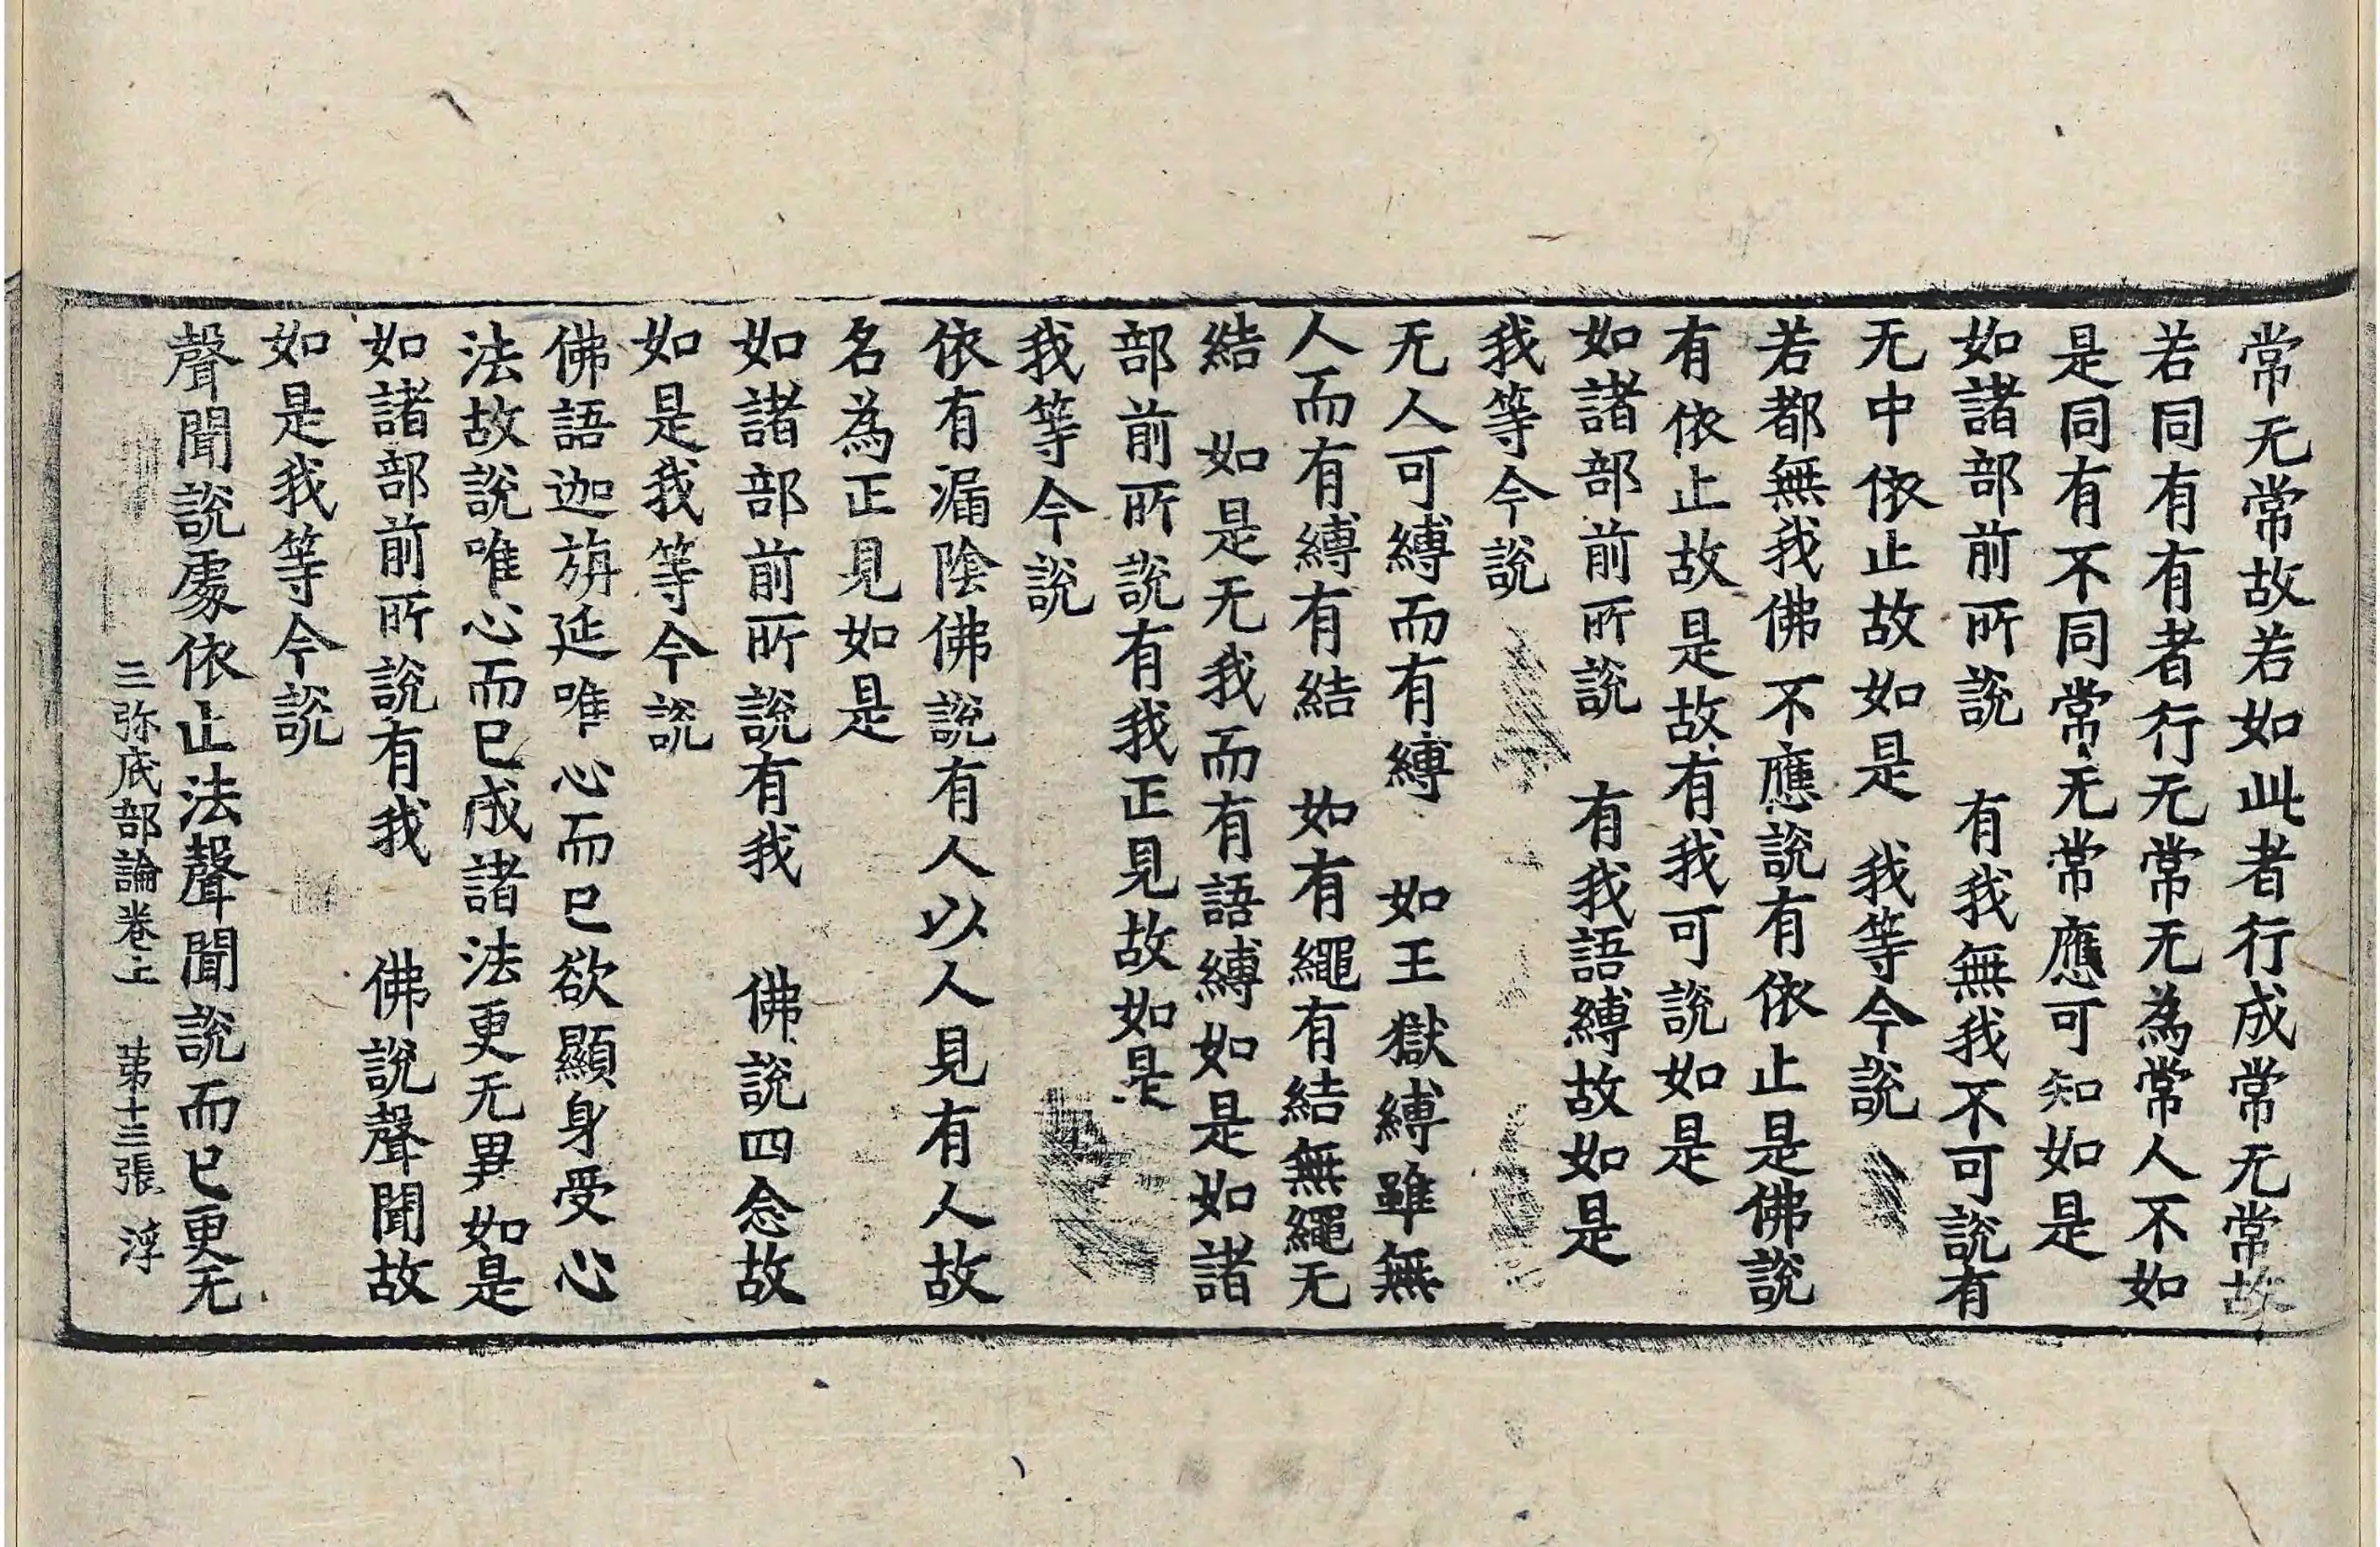 常无常故若如此者行成常无常故
若同有有者行无常无為常人不如
是同有不同常无常應可知如是
如諸部前所說　有我無我不可說有
无中依止故如是　我等今說
若都無我佛不應說有依止是佛說
有依止故是故有我可說如是
如諸部前所說　有我語縛故如是
我等今說
无人可縛而有縛　如王獄縛雖無
人而有縛有結　如有繩有結無繩无
結　如是无我而有語縛如是如諸
部前所說有我正見故如是
我等今說
依有漏陰佛說有人以人見有人故
名為正見如是
如諸部前所說有我　佛說四念故
如是我等今說
佛語迦旃延唯心而已欲顯身受心
法故說唯心而已成諸法更无異如是
如諸部前所說有我　佛說聲聞故
如是我等今說
聲聞說處依止法聲聞說而已更无
三弥底部論卷上　苐十三張　淳